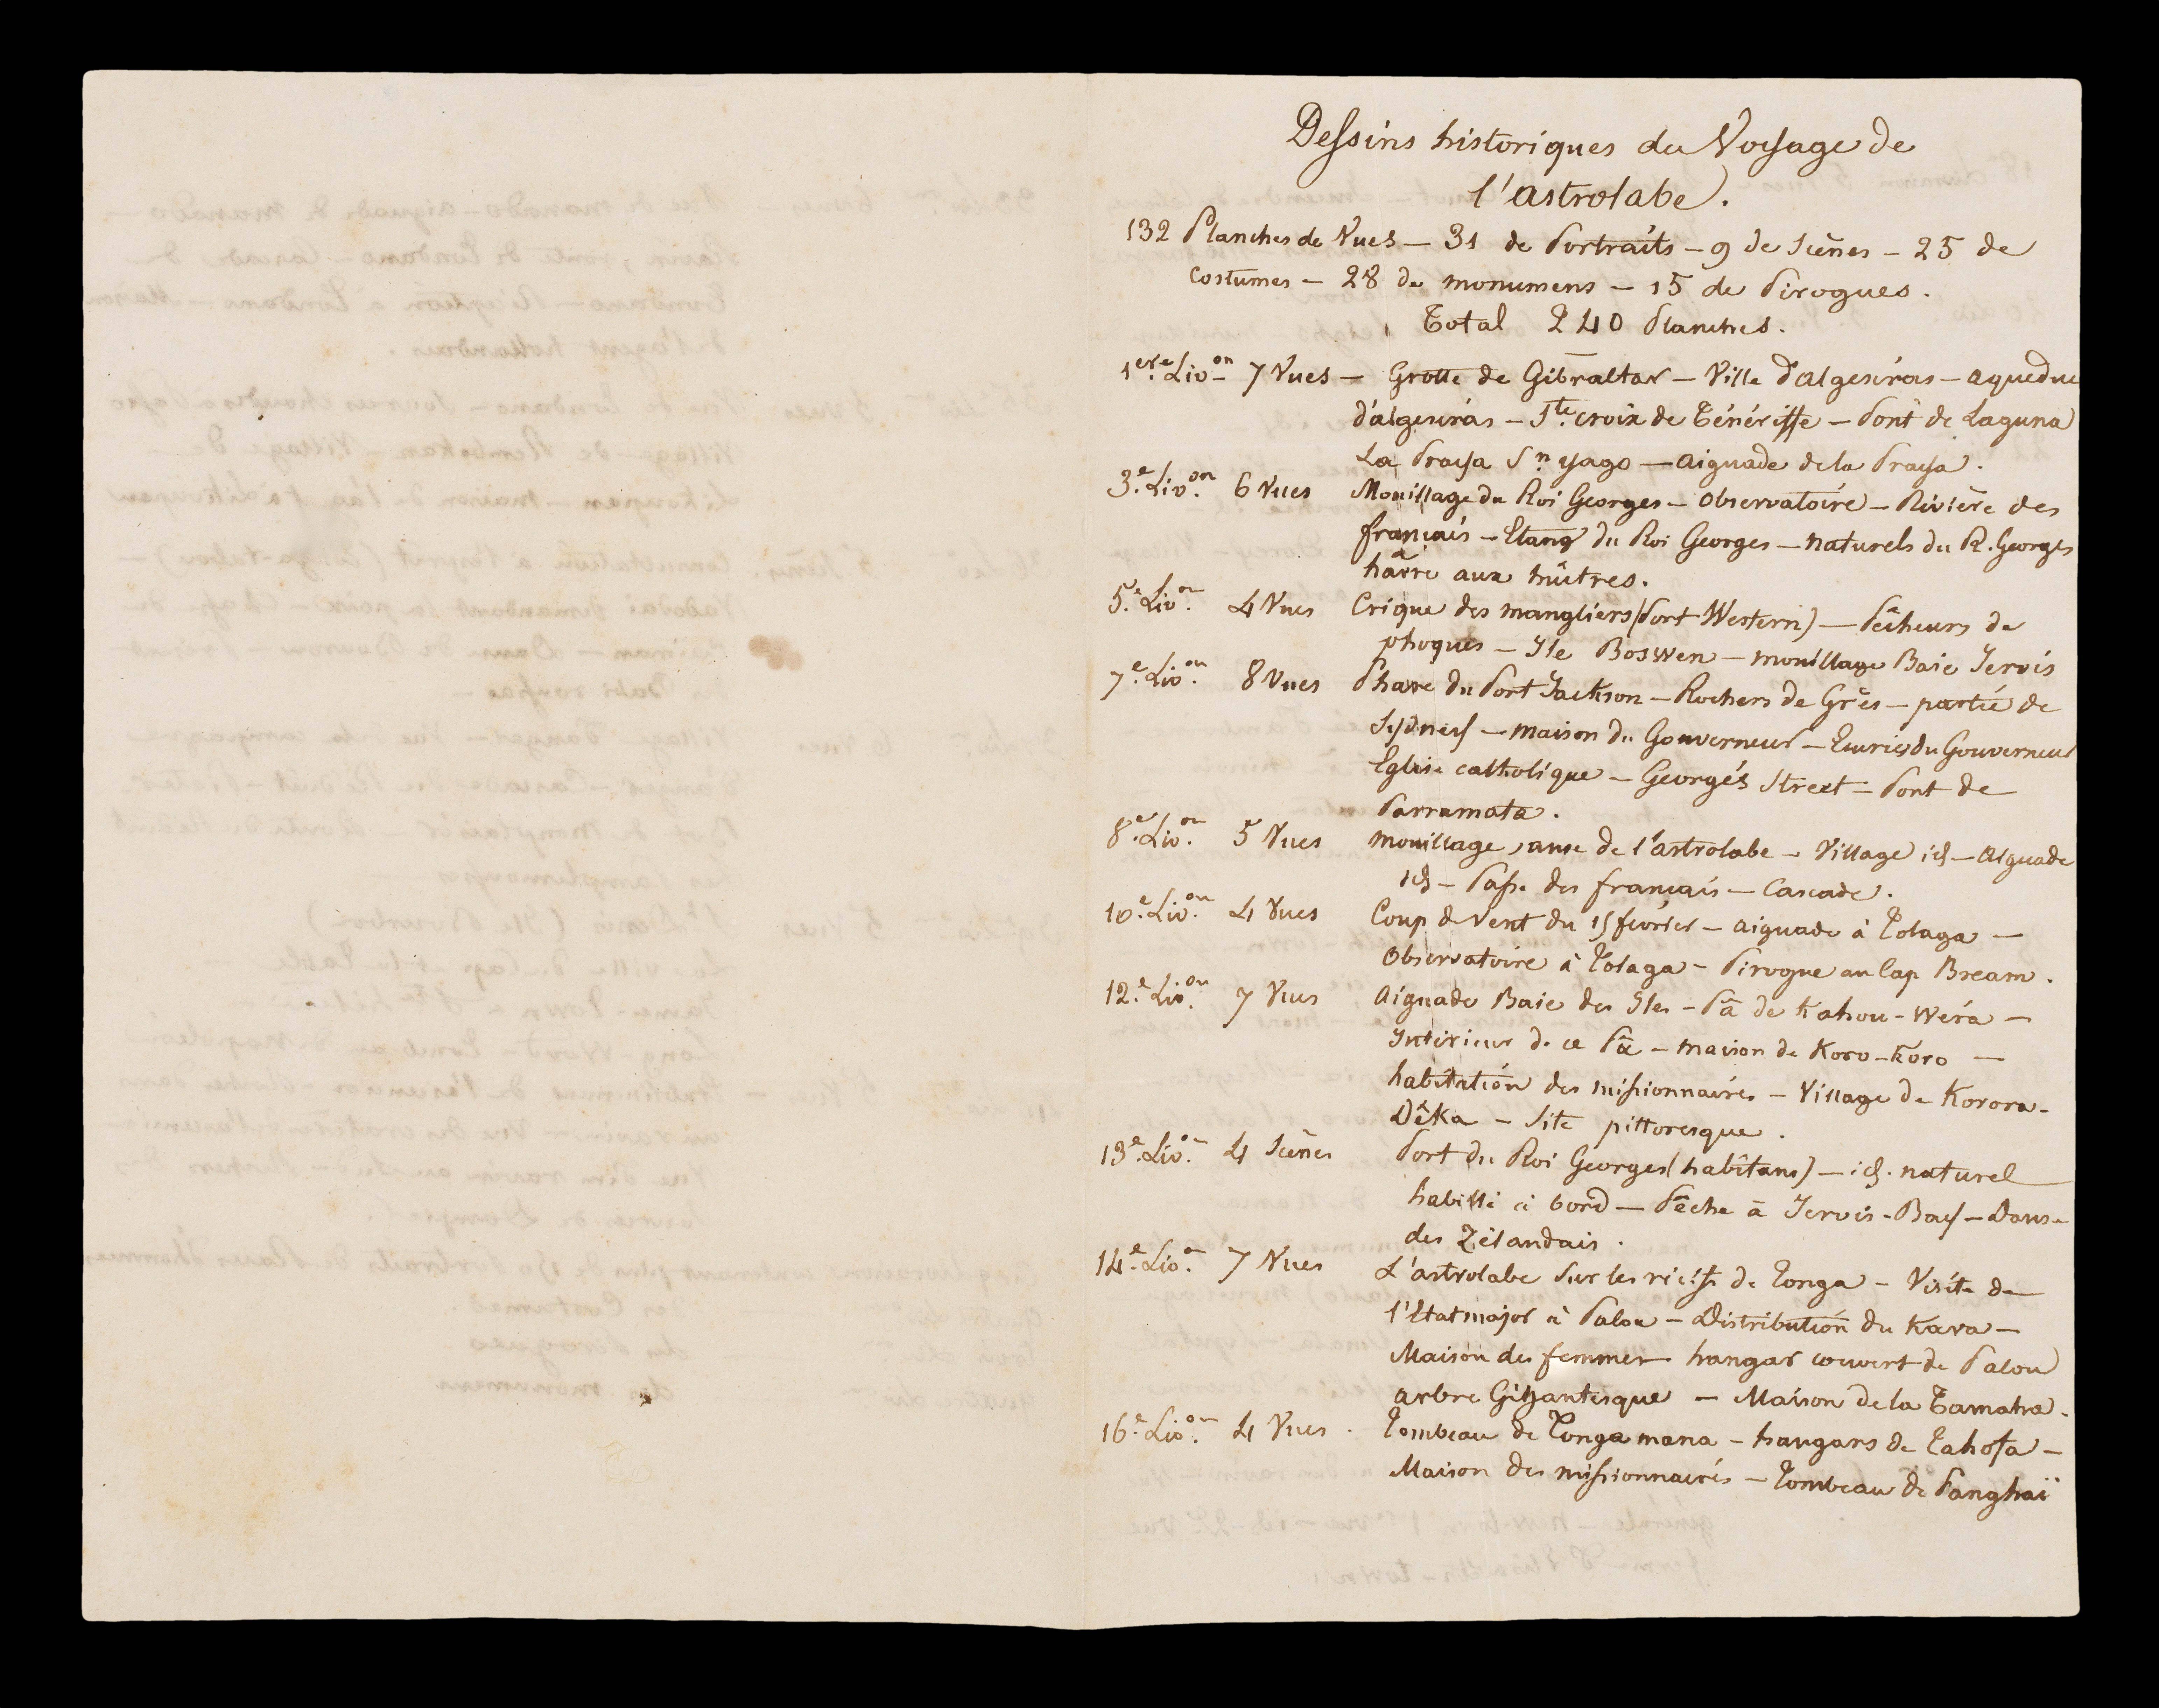 Dessins historiques du Voyage de
l'astrolabe.
132 Planches de Vues — 31 de Portraits — 9 de Scènes — 25 de
costumes — 28 de monumens — 15 de Pirogues.
Total 240 Planches.
1ere. Livon 7 Vues — Grotte de Gibraltar — Ville d'algesiras — aqueduc
d'algesiras — Ste. croix de Ténériffe — Pont de Laguna
La Praya Sn yago — aiguade de la Praya.
3e. Livon. 6 Vues Mouillage du Roi Georges — Observatoire — Rivière des
français — Etang du Roi Georges — naturels du R. Georges
hâvre aux huîtres.
5e. Livon. 4 Vues Crique des mangliers (Port Western) — Pêcheurs de
phoques — Ile Boswen — mouillage Baie Jervis
7e. Livon. 8 Vues Phare du Port Jackson — Rochers de Grès — partie de
Sydney — maison du Gouverneur — Ecuries du Gouverneur
Eglise catholique — George's Street — Pont de
Parramata.
8e. Livon. 5 Vues mouillage, anse de l'astrolabe — Village id — Aiguade
id — Passe des français — Cascade.
10e. Livon. 4 Vues Coup de Vent du 15 février — aiguade à Tolaga —
Observatoire à Tolaga — Pirogue au Cap Bream.
12e. Livon. 7 Vues Aiguade Baie des Iles — Pâ de Kahou-Wéra —
Intérieur de ce Pâ — maison de Koro-Koro —
habitation des missionnaires — Village de Korora-
Dêka — Site pittoresque.
13e. Livon. 4 Scènes Port du Roi Georges (habitans) — id. naturel
habillé à bord — Pêche à Jervis-Bay — Danse
des Zélandais.
14e. Livon. 7 Vues L'astrolabe sur les récifs de Tonga — Visite de
l'Etat major à Palou — Distribution du Kava —
Maison des femmes hangar couvert de Palou
arbre Gigantesque — Maison de la Tamaha.
16e. Livon. 4 Vues. Tombeau de Tonga mana — hangars de Tahofa —
Maison des missionnaires — Tombeau de Panghaï